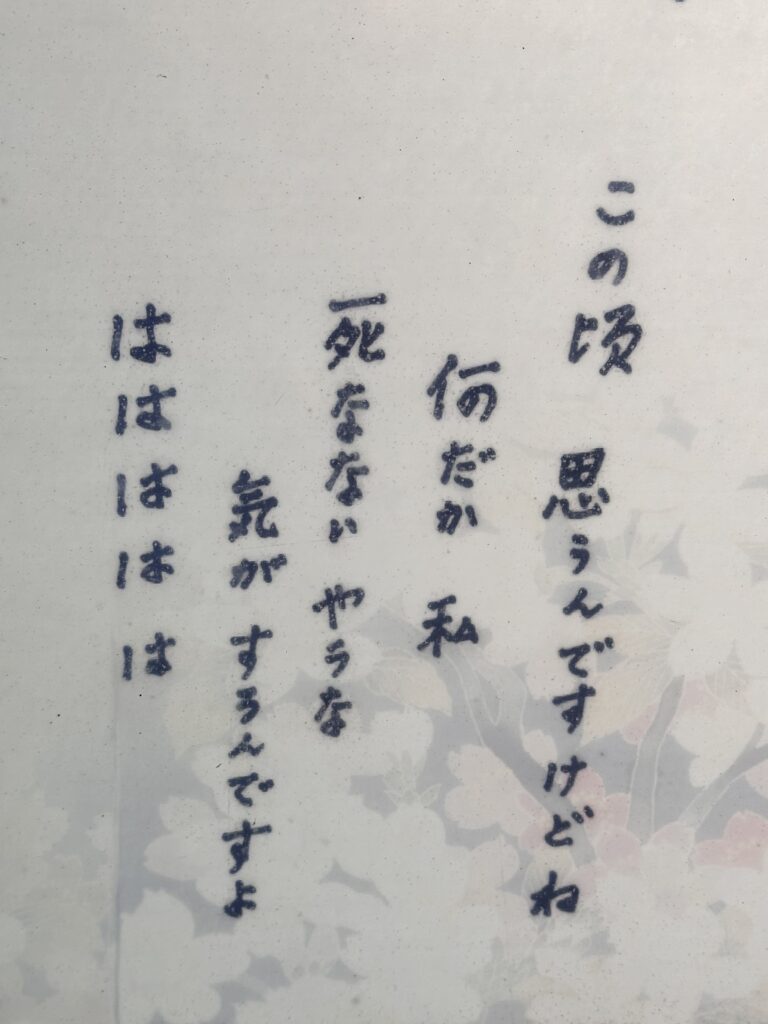 この頃 思うんですけどね
何だか 私
死なない やうな
気が するんですよ
ははははは